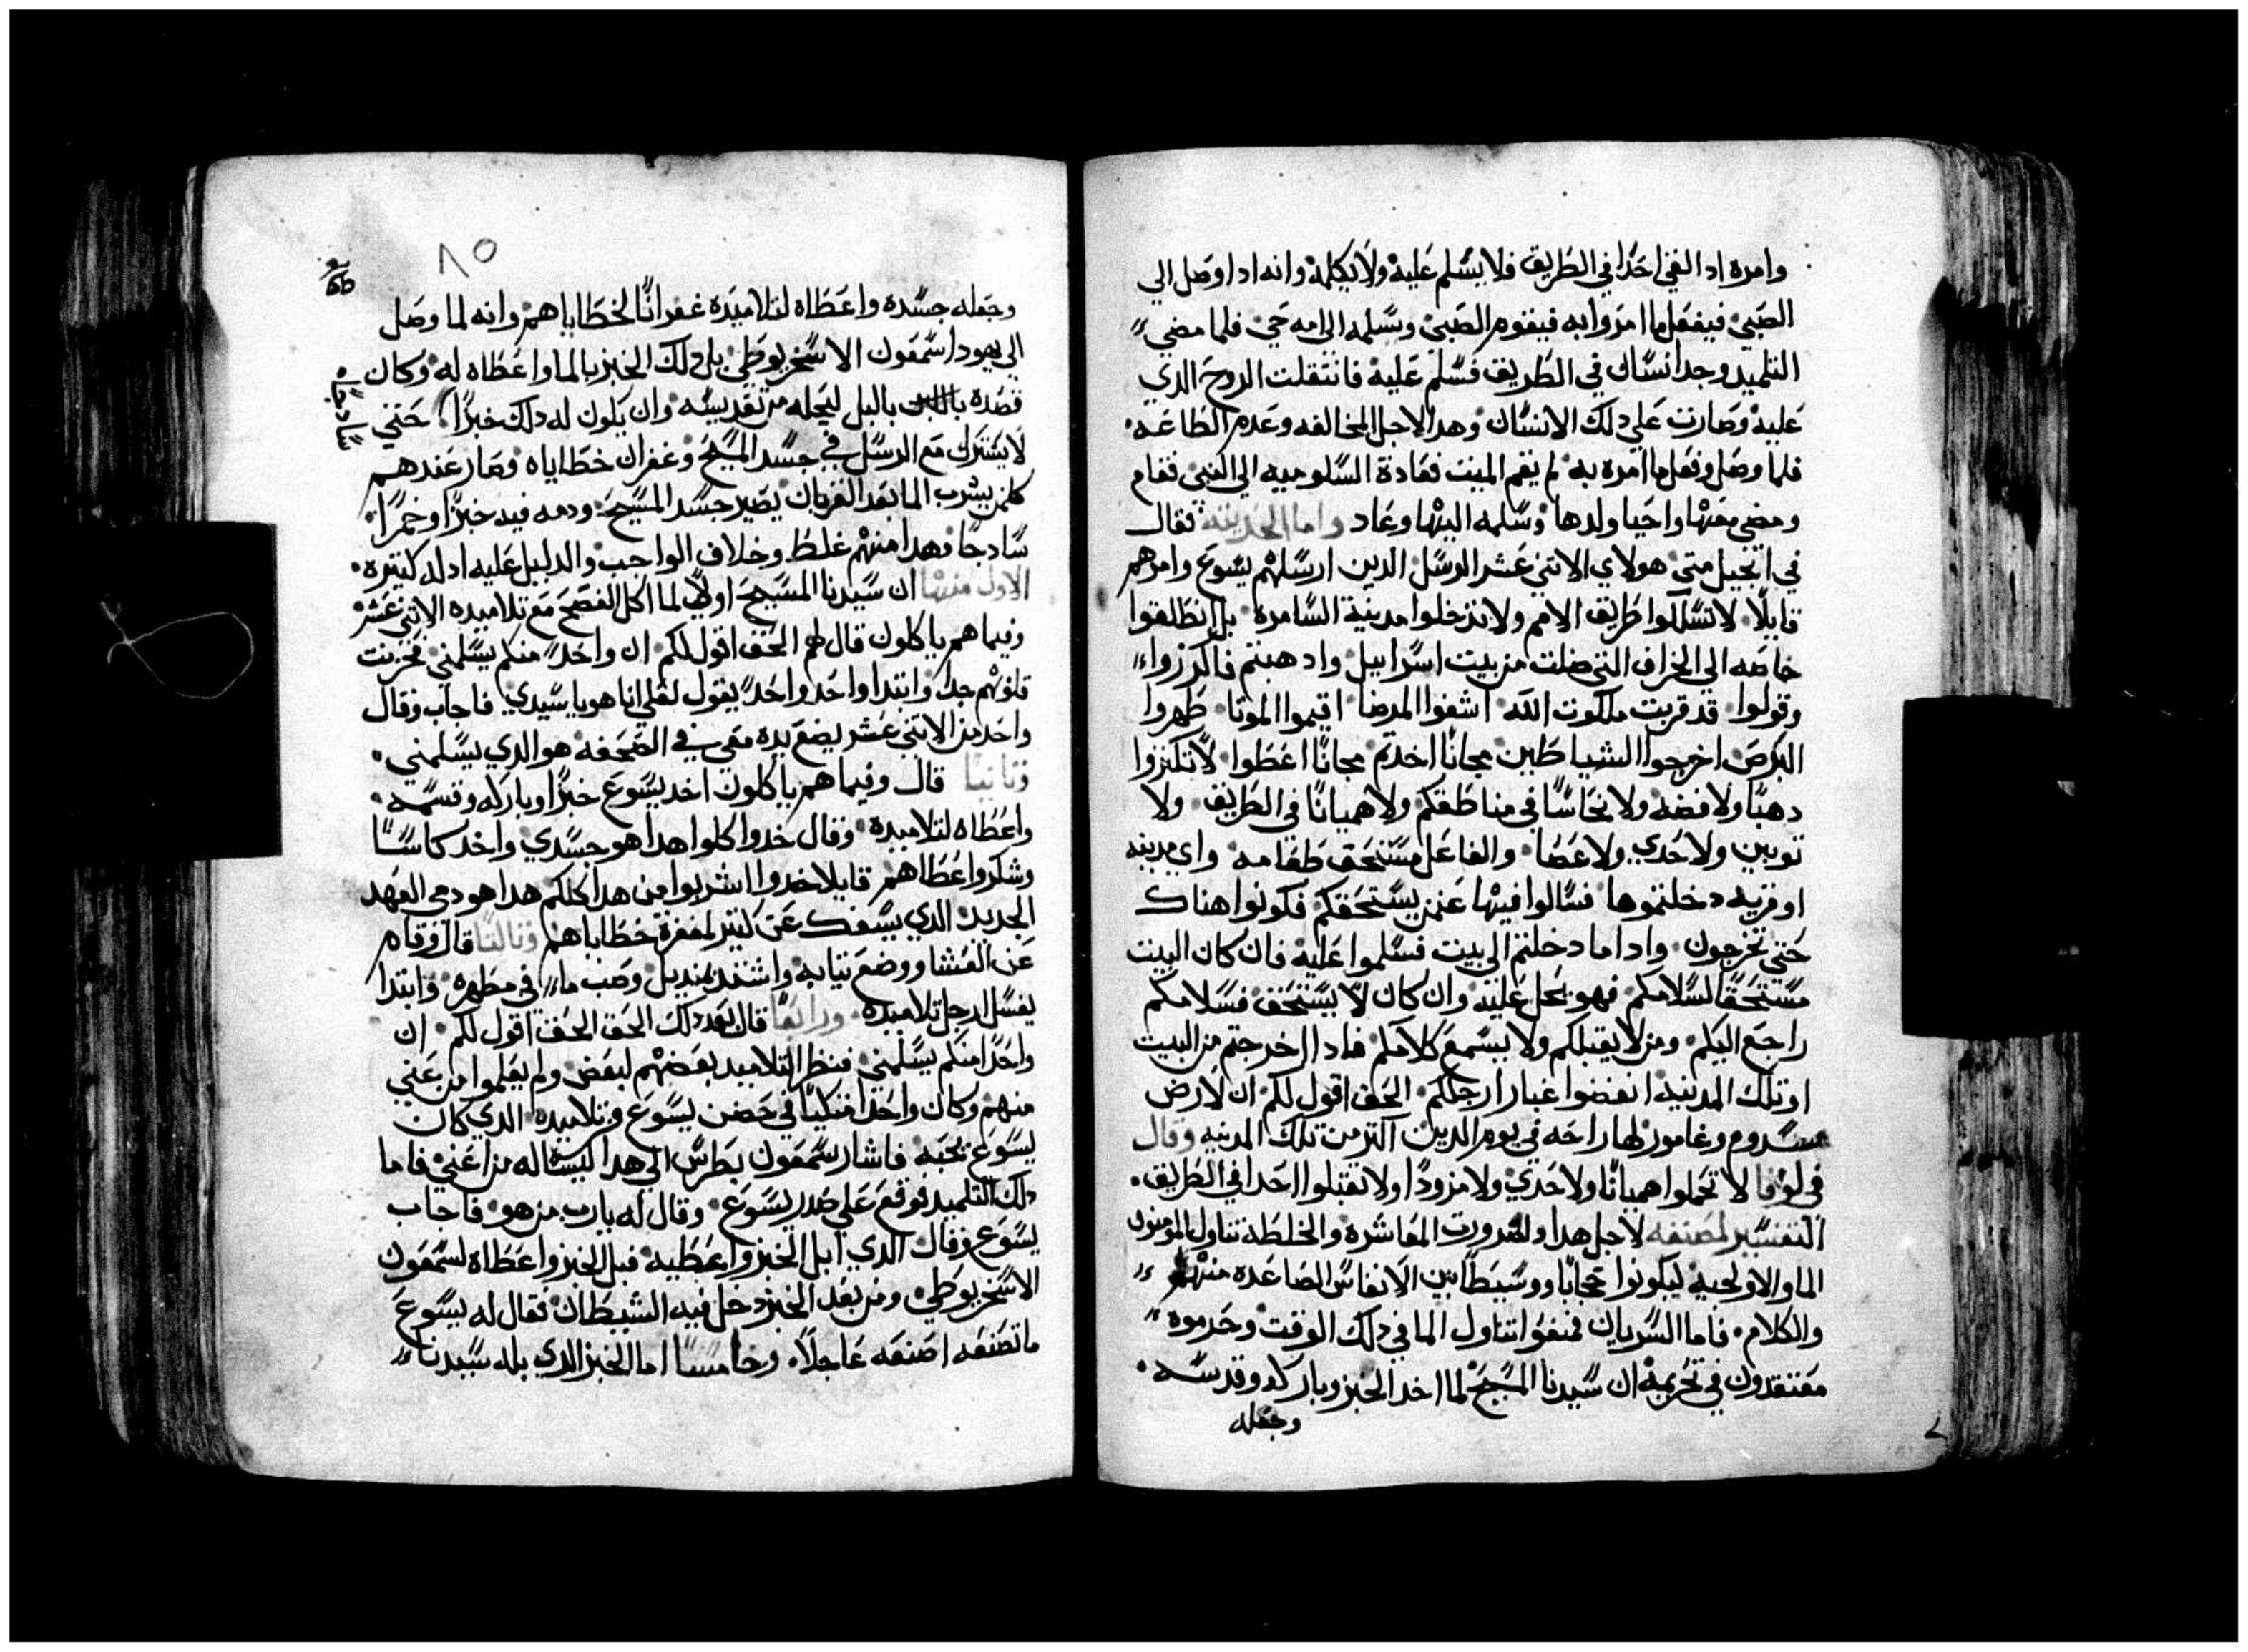 وامره ادا لقي احدا في الطريق فلا يسلم عليه ولا يكلمه وانه ادا وصل الي
الصبي فيفعل ما امر وابه فيقوم الصبي وسلمه الي امه حي فلما مضي
التلميد وجد انسان في الطريق فسلم عليه فانتقلت الروح الدي
عليه وصارت علي دلك الانسان وهدا لاجل المخالفه وعدم الطاعه
فلما وصل وفعل ما امره به لم يقم الميت فعادة السلوميه الي النبي فقام
ومضي معها واحيا ولدها وسلمه اليها وعاد واما الحديثه فقال
في انجيل متي هولاي الاتني عشر الرسل الدين ارسلهم يسوع وامرهم
قايلا لا تسلكوا طريق الامم ولا تدخلوا مدينة السامره بل انطلقوا
خاصه الي الخراف التي ضلت من بيت اسراييل وادهبتم فاكرزوا
وقولوا قد قربت ملكوت الله اشفوا المرضا اقيموا الموتا طهروا
البرص اخرجوا الشياطين مجانا اخدتم مجانا اعطوا لا تكنزوا
دهبا ولا فضه ولا نحاسا في مناطقكم ولا هميانا في الطريق ولا
توبين ولا حدي ولا عصا والفاعل مستحق طعامه واي مدينه
او قريه دخلتموها فسالوا فيها عنمن يستحقكم فكونوا هناك
حتي تخرجون وادا ما دخلتم الي بيت فسلموا عليه فان كان البيت
مستحقا لسلامكم فهو يحل عليه وان كان لا يستحق فسلامكم
راجع اليكم ومن لا يقبلكم ولا يسمع كلامكم فادا خرجتم من البيت
او تلك المدينه انفضوا غبار ارجلكم الحق اقول لكم ان لارض
سدوم وغامور لها راحه في يوم الدين اكتر من تلك المدينه وقال
في لوقا لا تحملوا هميانا ولا حدي ولا مزودا ولا تقبلوا احدا في الطريق
التفسير لمصنفه لاجل هدا ولضرورت المعاشره والخلطه تناول المومنون
الما والاولحيه ليكونوا حجابا ووسيطا بين الانفاس الصاعده منهم
والكلام فاما السريان فمنعوا تناول الما في دلك الوقت وحرموه
معتقدون في تحريمه ان سيدنا المسيح لما اخد الخبز وباركه وقدسه
وجعله
٨٥
وجعله جسده واعطاه لتلاميده غفرانا لخطاياهم وانه لما وصل
الي يهودا سمعون الاسخريوطي بل دلك الخبز بالما واعطاه له وكان
قصده بالبل ليحله من تقديسه وان يكون له دلك خبزا حتي
سادجا
لا يشترك مع الرسل في جسد المسيح وغفران خطاياه وصار عندهم
كلمن يشرب الما بعد القربان يصير جسد المسيح ودمه فيه خبزا وخمرا
سادجا فهدا منهم غلط وخلاف الواجب والدليل عليه ادله كتيره
الاول منها ان سيدنا المسيح اولا لما اكل الفصح مع تلاميده الاتني عشر
وفيما هم ياكلون قال لهم الحق اقول لكم ان واحد منكم يسلمني فحزنت
قلوبهم جدا وابتدا واحد واحد يقول لعلي انا هو يا سيدي فاجاب وقال
واحد من الاتني عشر يضع يده معي في الصحفه هو الدي يسلمني
وتانيا قال وفيما هم ياكلون اخد يسوع خبزا وباركه وقسمه
واعطاه لتلاميده وقال خدوا كلوا هدا هو جسدي واخد كاسا
وشكر واعطاهم قايلا خدوا اشربوا من هدا كلكم هدا هو دمي العهد
الجديد الدي يسفك عن كتير لمغفرة خطاياهم وتالتا قال وقام
عن العشا ووضع تيابه واشتد بمنديل وصب ما في مطهره وابتدا
يغسل ارجل تلاميده ورابعا قال بعد دلك الحق الحق اقول لكم ان
واحدا منكم يسلمني فنظر التلاميد بعضهم لبعض ولم يعلموا من عني
منهم وكان واحدا متكيا في حضن يسوع من تلاميده الدي كان
يسوع يحبه فاشار سمعون بطرس الي هدا ليساله من اعني فاما
دلك التلميد فوقع علي صدر يسوع وقال له يا رب من هو فاجاب
يسوع وقال الدي ابل الخبز واعطيه فبل الخبز واعطاه لسمعون
الاسخريوطي ومن بعد الخبز دخل فيه الشيطان فقال له يسوع
ما تصنعه اصنعه عاجلا وخامسا اما الخبز الدي بله سيدنا